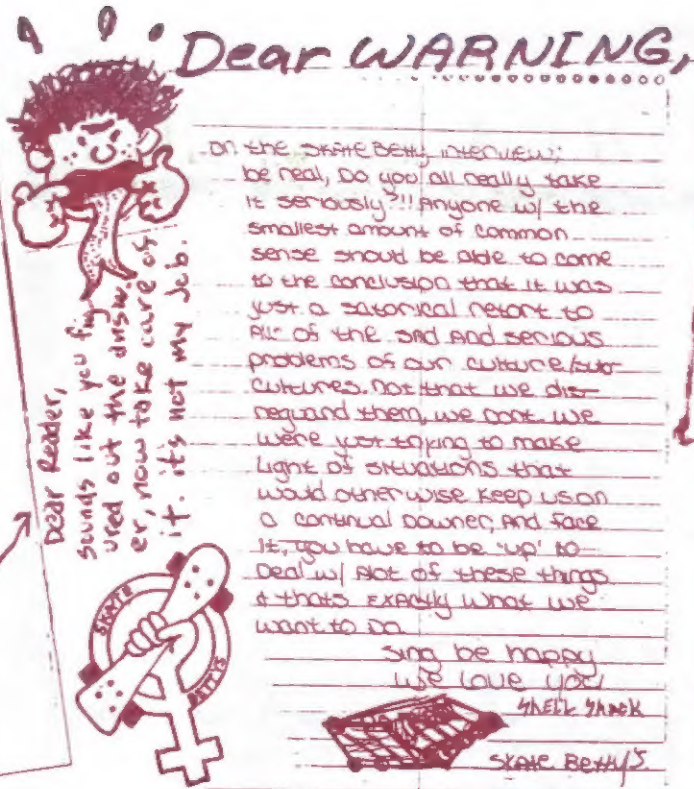 Dear WARNING,
on the SKATE BETTY interview;
be real, Do you all really take
it seriously?!! Anyone w/ the
smallest amount of common
sense should be able to come
to the conclusion that it was
just a satorical retort to
All of the SAD AND serious
problems of our culture/sub-
cultures. Not that we dis-
reguard them, we dont. we
were just trying to make
Light of situations that
would otherwise keep us on
a continual Downer, And face
it, you have to be 'up' to
Deal w/ Alot of these things
& thats EXActly what we
want to do
sing be happy
we love you!
SHELL SHACK
SKATE BETTY'S.
Dear Reader,
sounds like you fig
ured out the answ.
er, now take care of
it. it's not my Job.
SKATE
BETTYS